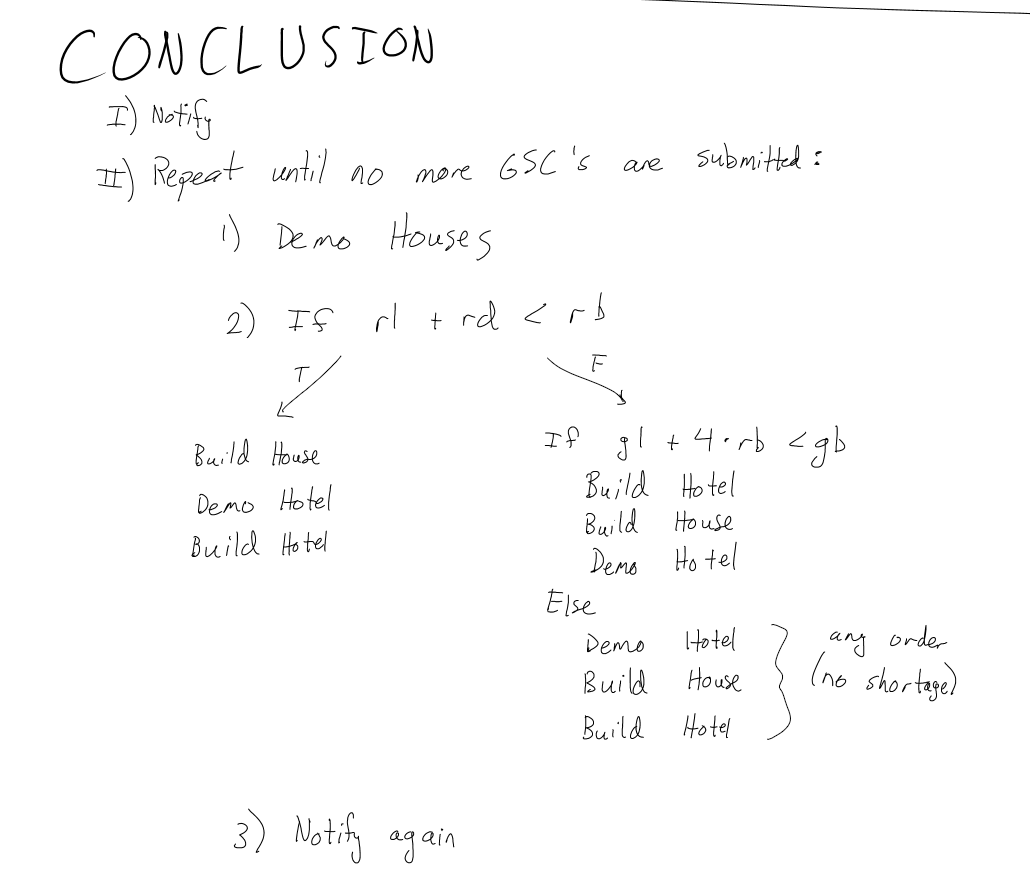 CONCLUSION
I) Notify
II) Repeat until no more GSC's are submitted:
1) Demo Houses
2) If rl + rd < rb
T
F
Build House
Demo Hotel
Build Hotel
If gl + 4·rb < gb
Build Hotel
Build House
Demo Hotel
Else
Demo Hotel
Build House
Build Hotel
any order
(no shortage)
3) Notify again